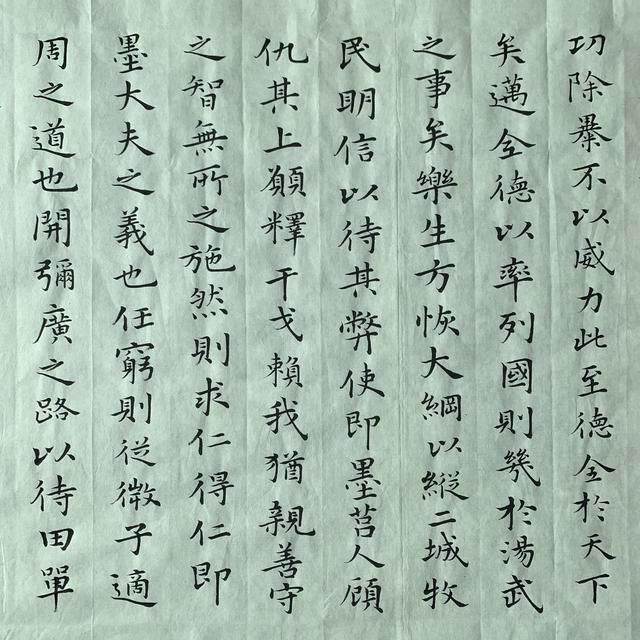 功除暴不以威力此至德全於天下
矣邁全德以率列國則幾於湯武
之事矣樂生方恢大綱以縱二城牧
民明信以待其弊使即墨莒人顧
仇其上願釋干戈賴我猶親善守
之智無所之施然則求仁得仁即
墨大夫之義也任窮則從微子適
周之道也開彌廣之路以待田單